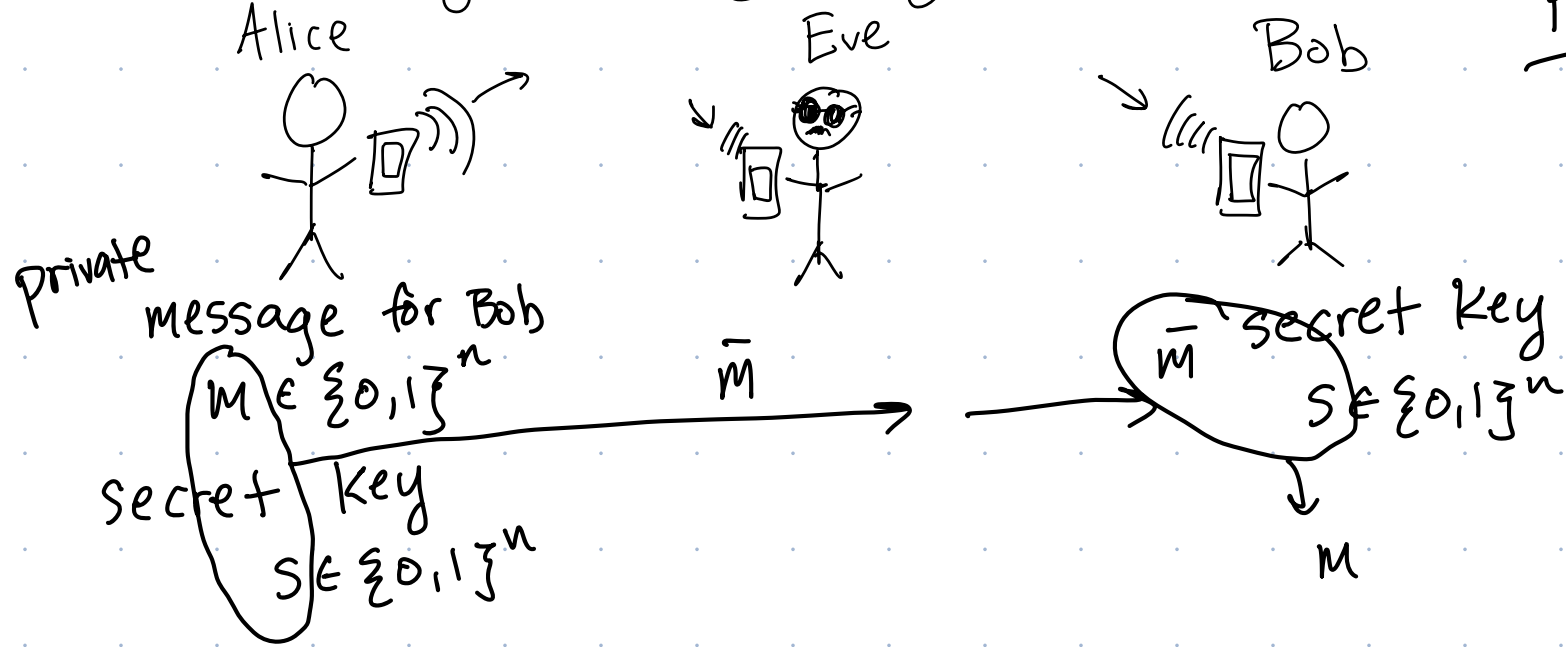 Alice Eve Bob
private
message for Bob
m ∈ {0,1}^n
secret key
s ∈ {0,1}^n
m̄
m̄ secret key
s ∈ {0,1}^n
m